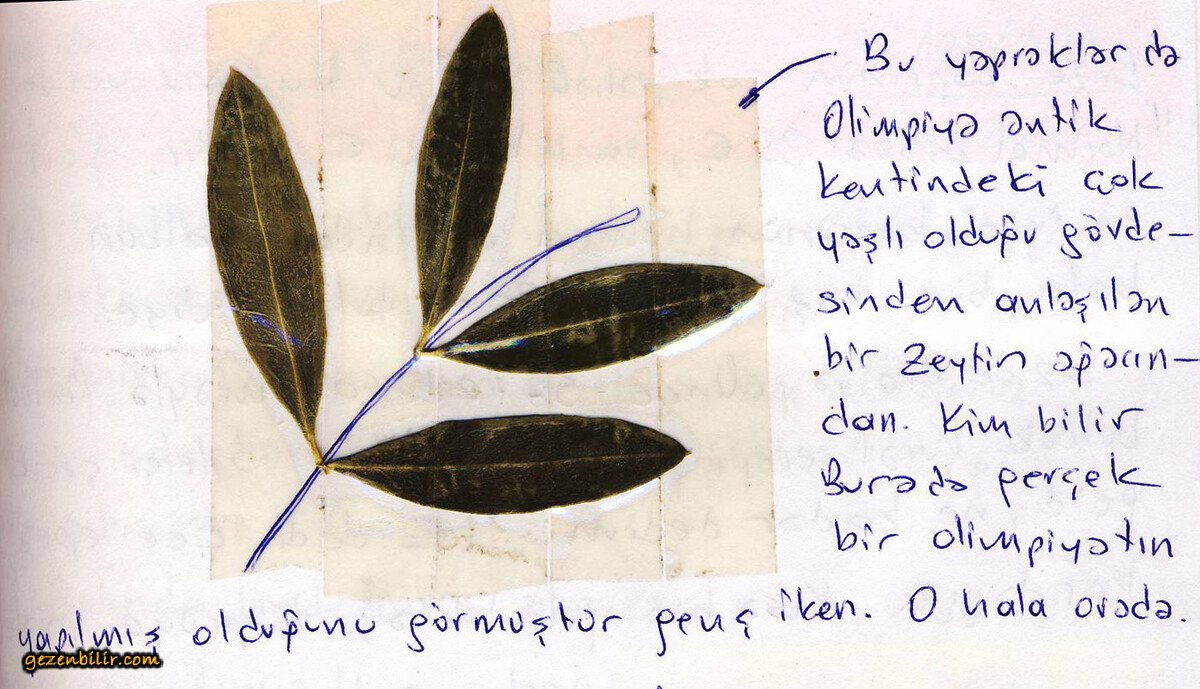 Bu yapraklar da
Olimpiya antik
kentindeki çok
yaşlı olduğu gövde-
sinden anlaşılan
bir Zeytin ağacın-
dan. Kim bilir
Burada gerçek
bir olimpiyatın
yapılmış olduğunu görmüştür genç iken. O hala orada.
gezenbilir.com